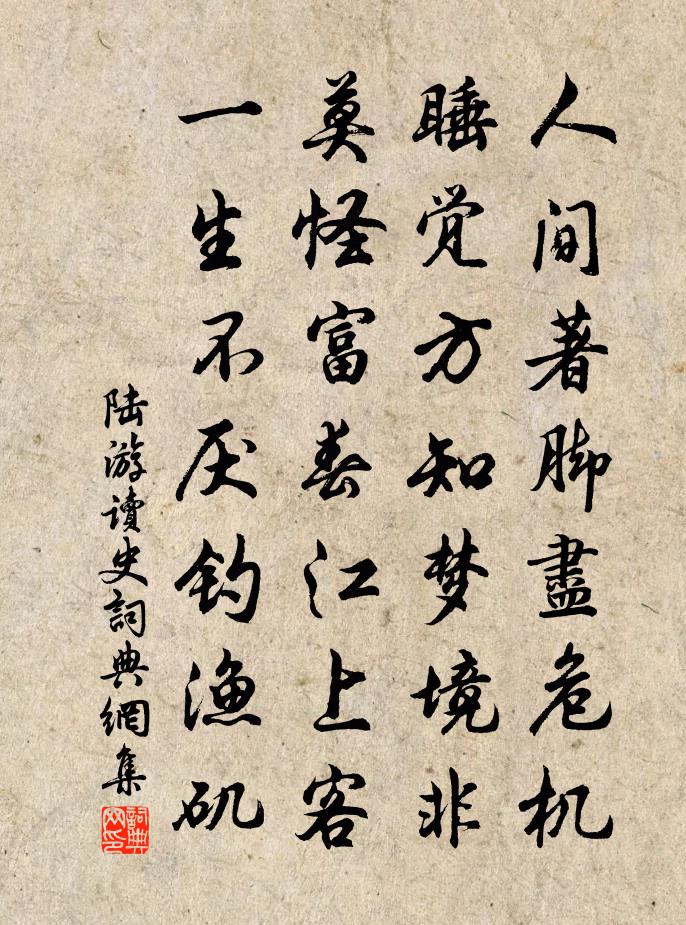 人间著脚盡危机
睡觉方知梦境非
莫怪富春江上客
一生不厌钓渔矶
陆游讀史詞典網集
詞典网印